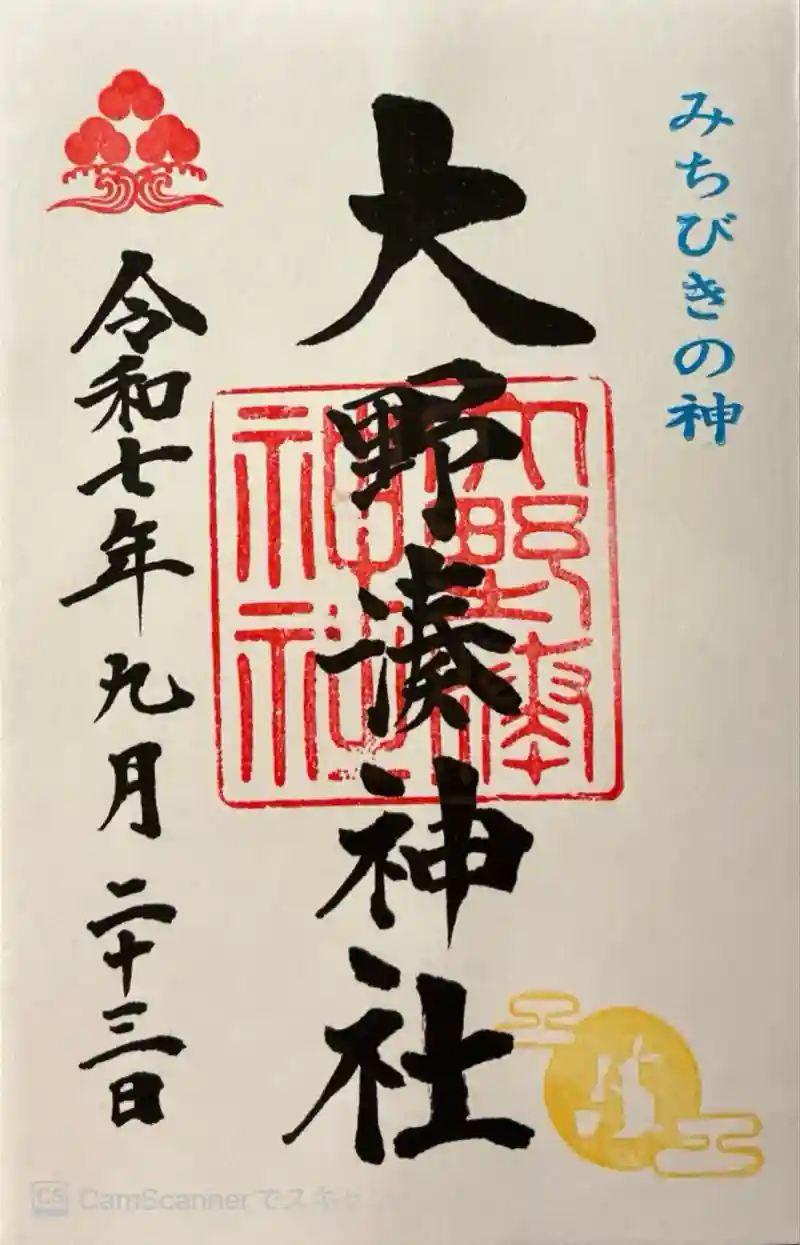 みちびきの神
大野湊神社
大野湊
神社
令和七年九月二十三日
CS CamScannerでスキャン